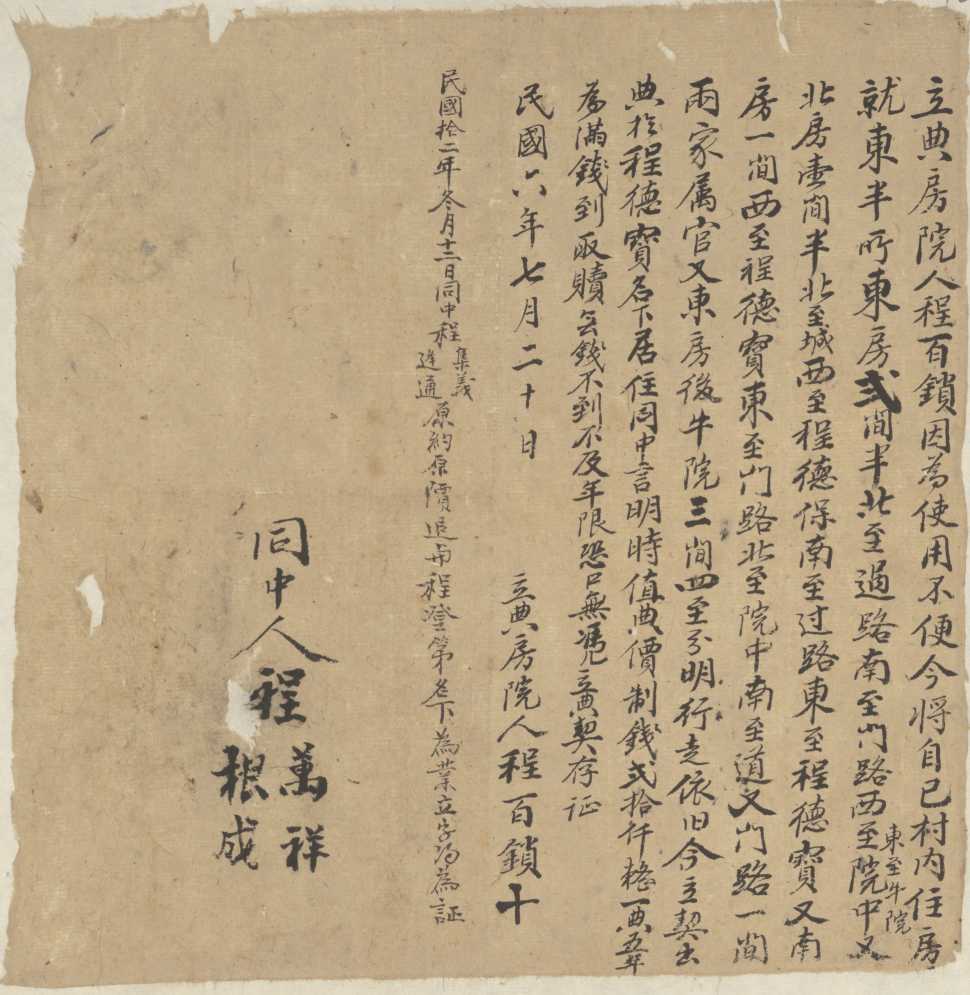 立典房院人程百鎖因為使用不便今将自己村内住房
就東半所東房弍間半北至過路南至門路西至院中又
東至牛院
北房壹間半北至城西至程德保南至过路東至程德寶又南
房一間西至程德寶東至门路北至院中南至道又门路一間
兩家属官又東房後牛院三間四至分明行走依旧今立契出
典於程德寶名下居住同中言明時值典價制錢弍拾仟楮一典五年
為滿錢到取贖無錢不到不及年限恐口無憑立典契存证
民國六年七月二十日
立典房院人程百鎖十
民國拾二年冬月十二日同中程集義進通原約原價退与程澄第名下為業立字為証
同中人程萬祥
根成